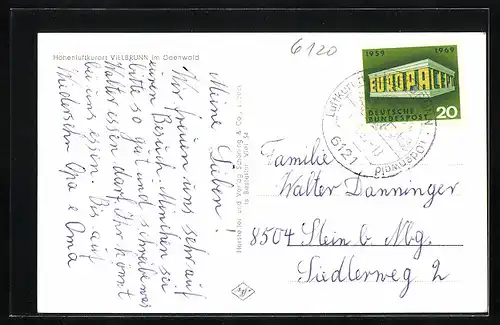 6120
Höhenluftkurort VIELBRUNN im Odenwald
Meine Lieben!
Wir freuen uns sehr auf
euren Besuch. München sei
bitte so gut und schreibe was
Walter essen darf. Ihr könnt
bei uns essen. Bis auf
Wiedersehn Opa & Oma
Hersteller und Verlag: Schöning & Co., Lübeck
1959 1969
EUROPA CEPT
DEUTSCHE
BUNDESPOST 20
6121
Odenwald
Familie
Walter Danninger
8504 Stein b. Nbg.
Siedlerweg 2